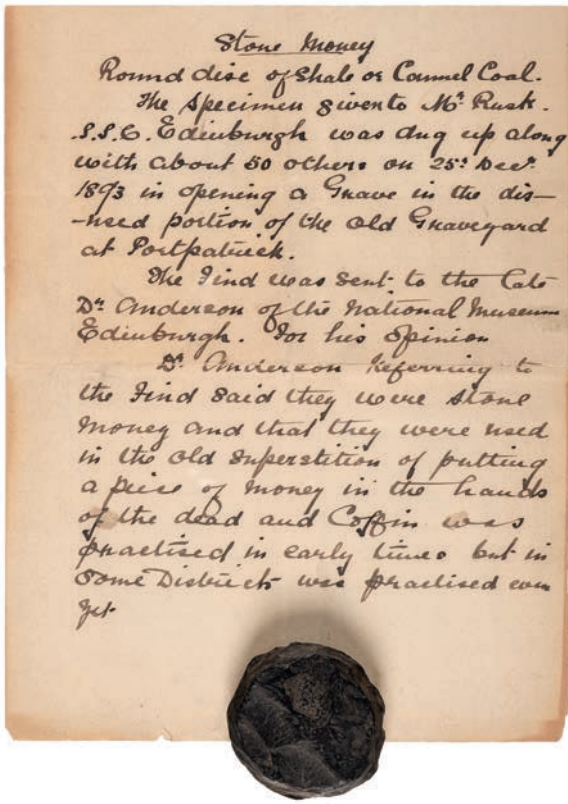 Stone Money
Round disc of Shale or Cannel Coal.
The Specimen given to Mr. Rusk.
S.S.C. Edinburgh was dug up along
with about 50 others on 25th Decr.
1893 in opening a Grave in the dis-
-used portion of the old Graveyard
at Portpatrick.
The Find was sent to the late
Dr. Anderson of the National Museum
Edinburgh. For his opinion
Dr. Anderson Referring to
the Find said they were stone
Money and that they were used
in the old Superstition of putting
a piece of money in the hands
of the dead and Coffin was
practised in early times but in
Some Districts was practised even
yet